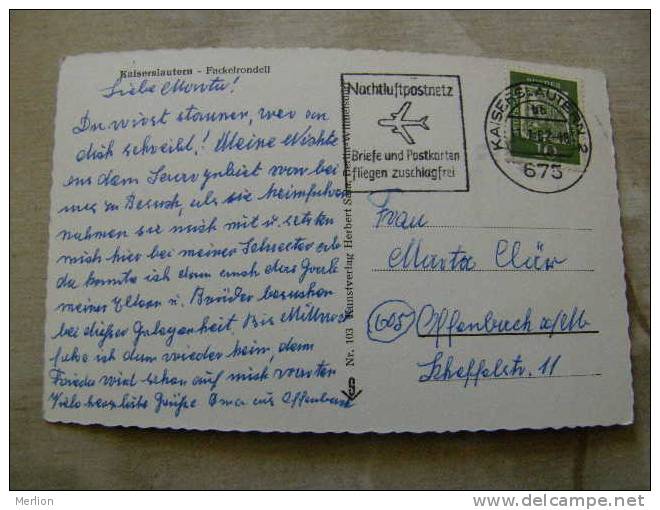 Kaiserslautern - Fackelrondell
Liebe Marta!
Du wirst staunen, wer an
dich schreibt! Meine Nichte
aus dem Saargebiet waren bei
uns zu Besuch, als sie heimfuhren
nahmen sie mich mit u. setzten
mich hier bei meiner Schwester ab
da konnte ich dann auch das Grab
meiner Eltern u. Brüder besuchen
bei dießer Gelegenheit. Bis Mittwoch
fahre ich dann wieder heim, denn
Frieda wird schon auf mich warten
Viele herzliche Grüße Oma aus Offenbach
Nr. 103 Kunstverlag Herbert
Nachtluftpostnetz
Briefe und Postkarten
fliegen zuschlagfrei
KAISERSLAUTERN 2
675
10
Frau
Marta Clär
(605) Offenbach a/M
Scheffelstr. 11
Merlion
http://www.delcampe.net